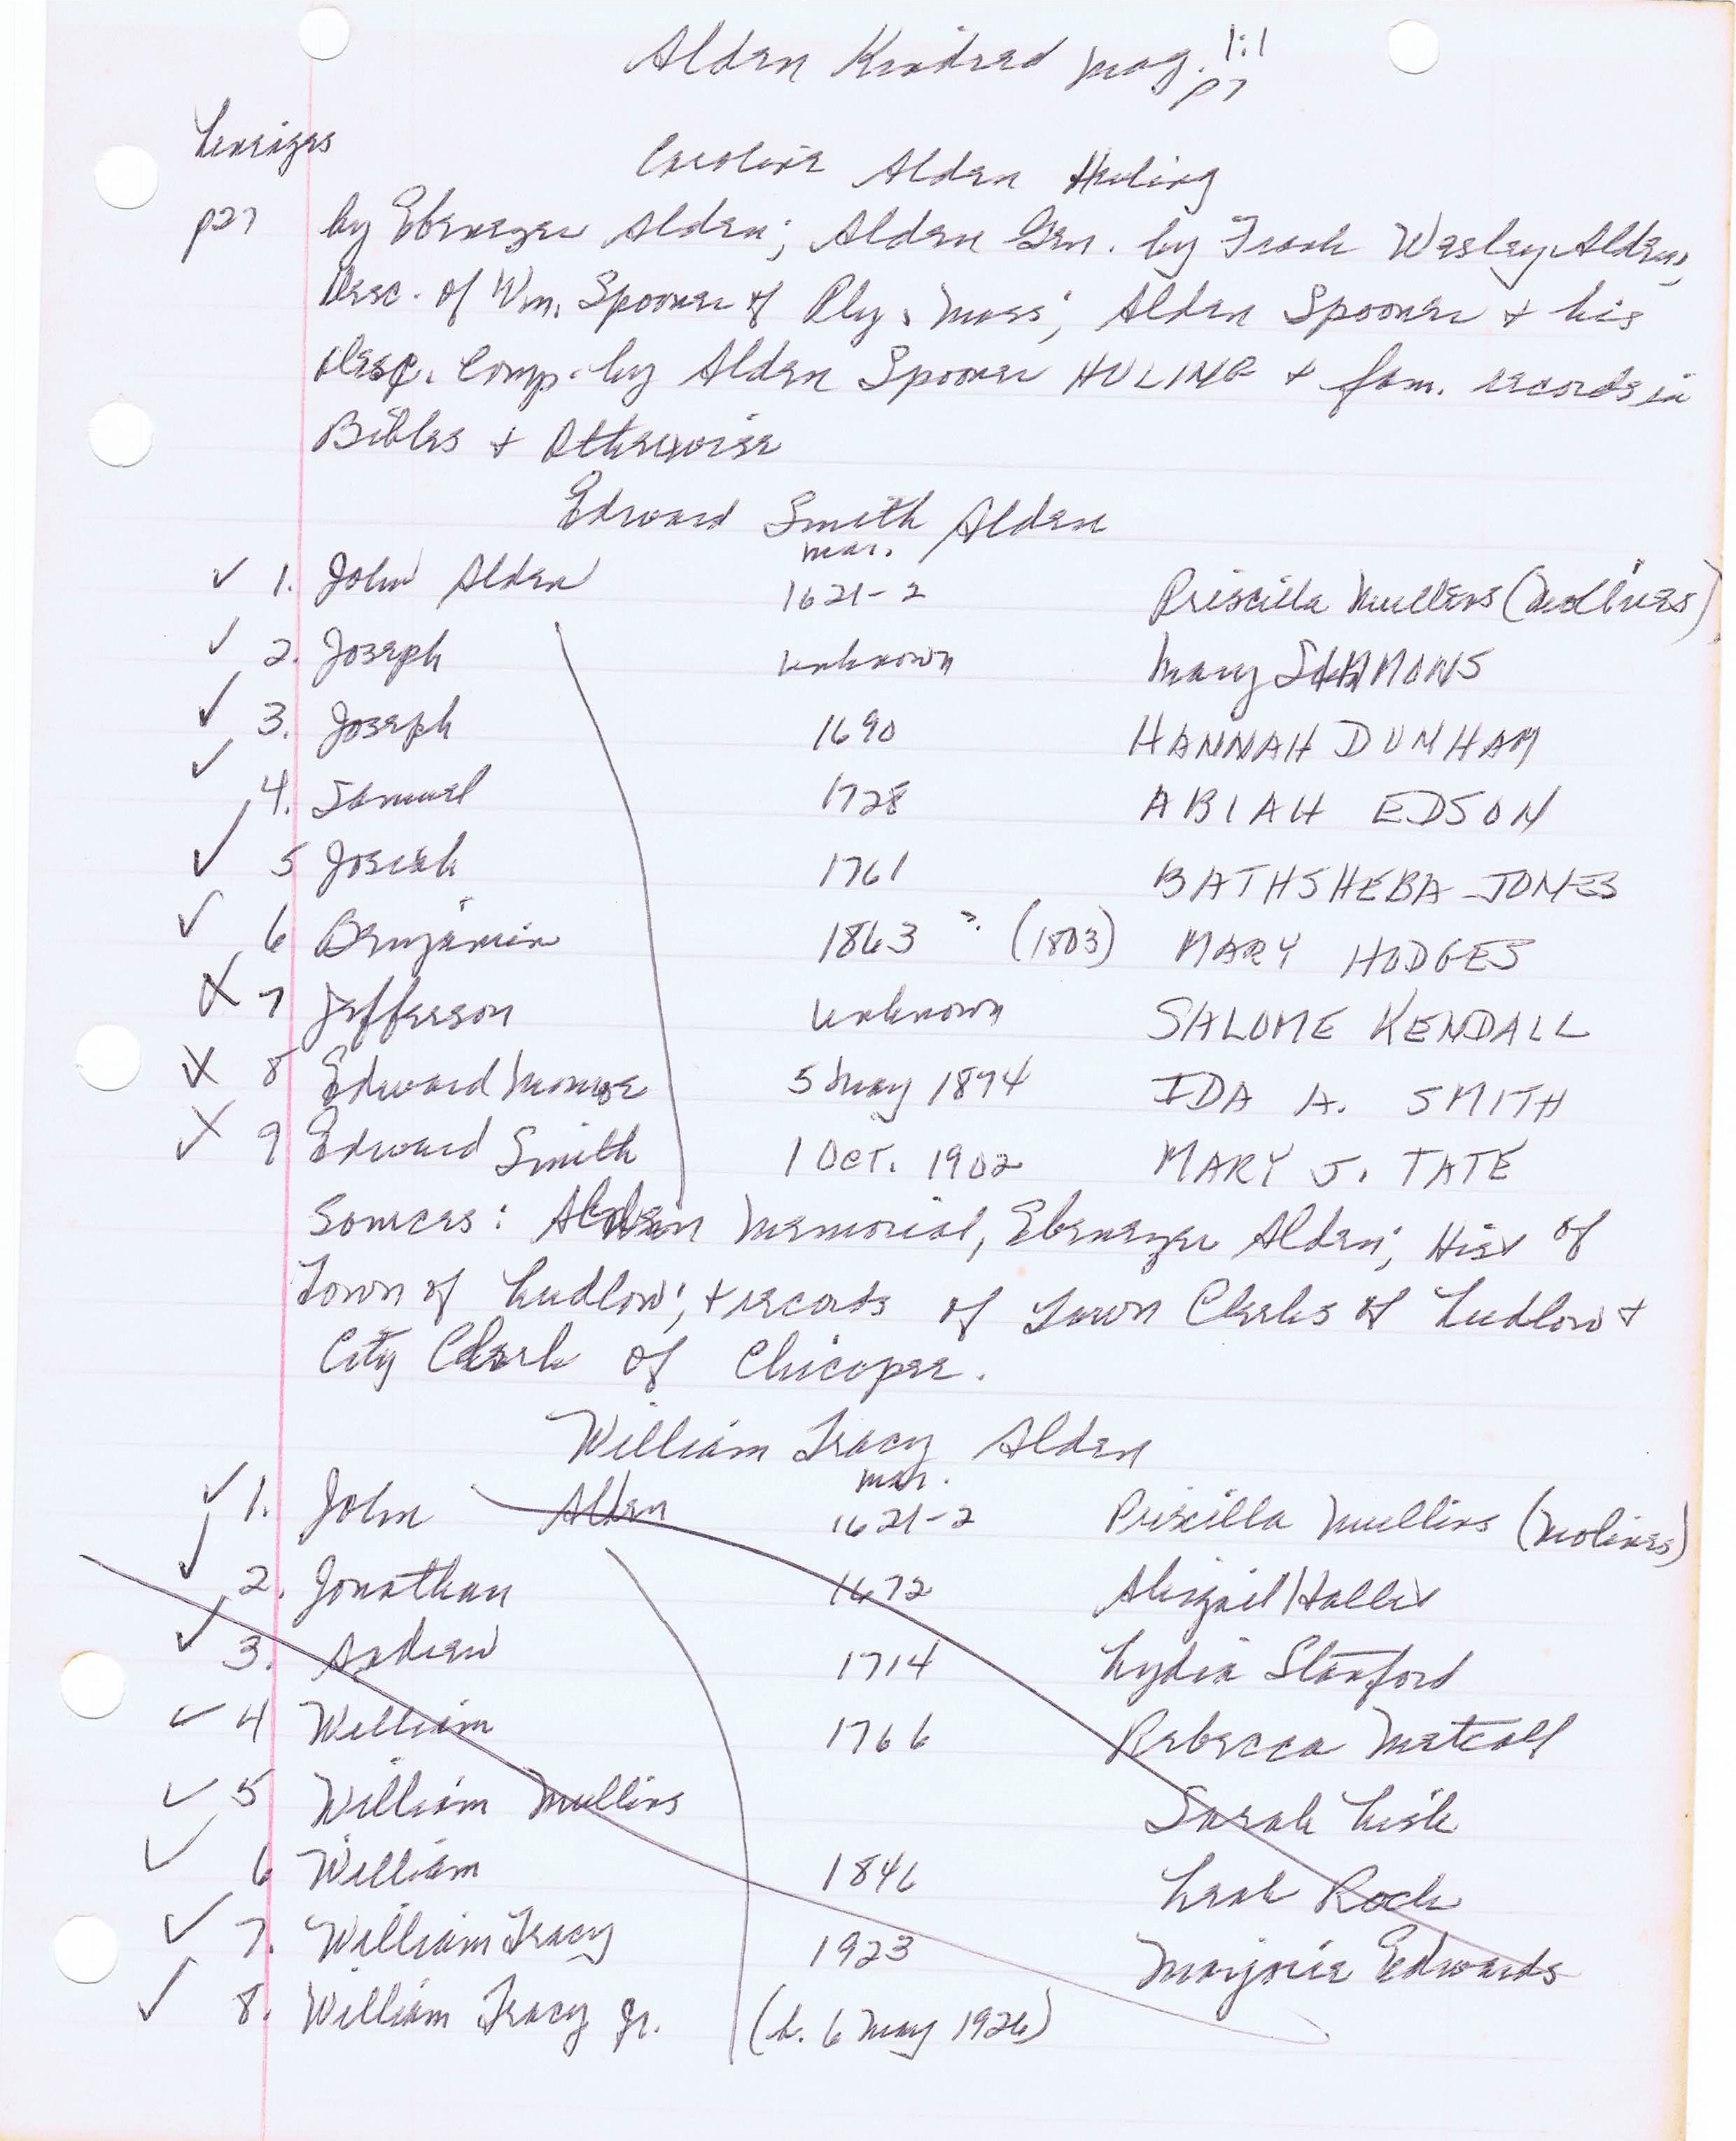 Alden Kindred Mag. 1:1
p7
Lineages
Caroline Alden Huling
p27 by Ebenezer Alden; Alden Gen. by Frank Wesley Alden;
Desc. of Wm. Spooner of Ply., Mass; Alden Spooner + his
Desc. Comp. by Alden Spooner HULING + fam. records in
Bibles + Otherwise
Edward Smith Alden
mar.
✓ 1. John Alden 1621-2 Priscilla Mullins (Molines)
✓ 2. Joseph unknown Mary SIMMONS
✓ 3. Joseph 1690 HANNAH DUNHAM
✓ 4. Samuel 1728 ABIAH EDSON
✓ 5 Josiah 1761 BATHSHEBA JONES
✓ 6 Benjamin 1863 ? (1803) MARY HODGES
X 7 Jefferson unknown SALOME KENDALL
X 8 Edward Monroe 5 May 1874 IDA A. SMITH
X 9 Edward Smith 1 Oct. 1902 MARY J. TATE
Sources: Alden Memorial, Ebenezer Alden; Hist of
Town of Ludlow; + records of Town Clerks of Ludlow +
City Clerk of Chicopee.
William Tracy Alden
mar.
✓ 1. John Alden 1621-2 Priscilla Mullins (Molines)
✓ 2. Jonathan 1672 Abigail Hallet
✓ 3. Andrew 1714 Lydia Stanford
✓ 4 William 1766 Rebecca Metcalf
✓ 5 William Mullins Sarah Lisk
✓ 6 William 1846 Leah Rock
✓ 7. William Tracy 1923 Marjorie Edwards
✓ 8. William Tracy Jr. (b. 6 May 1926)